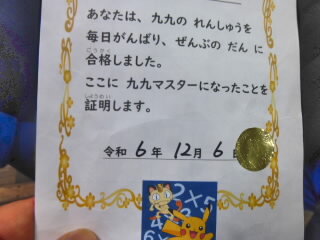 あなたは、九九の れんしゅうを
毎日がんばり、ぜんぶの だん に
合格しました。
ここに 九九マスターになったことを
証明します。
令和 6 年 12 月 6 日
2×5